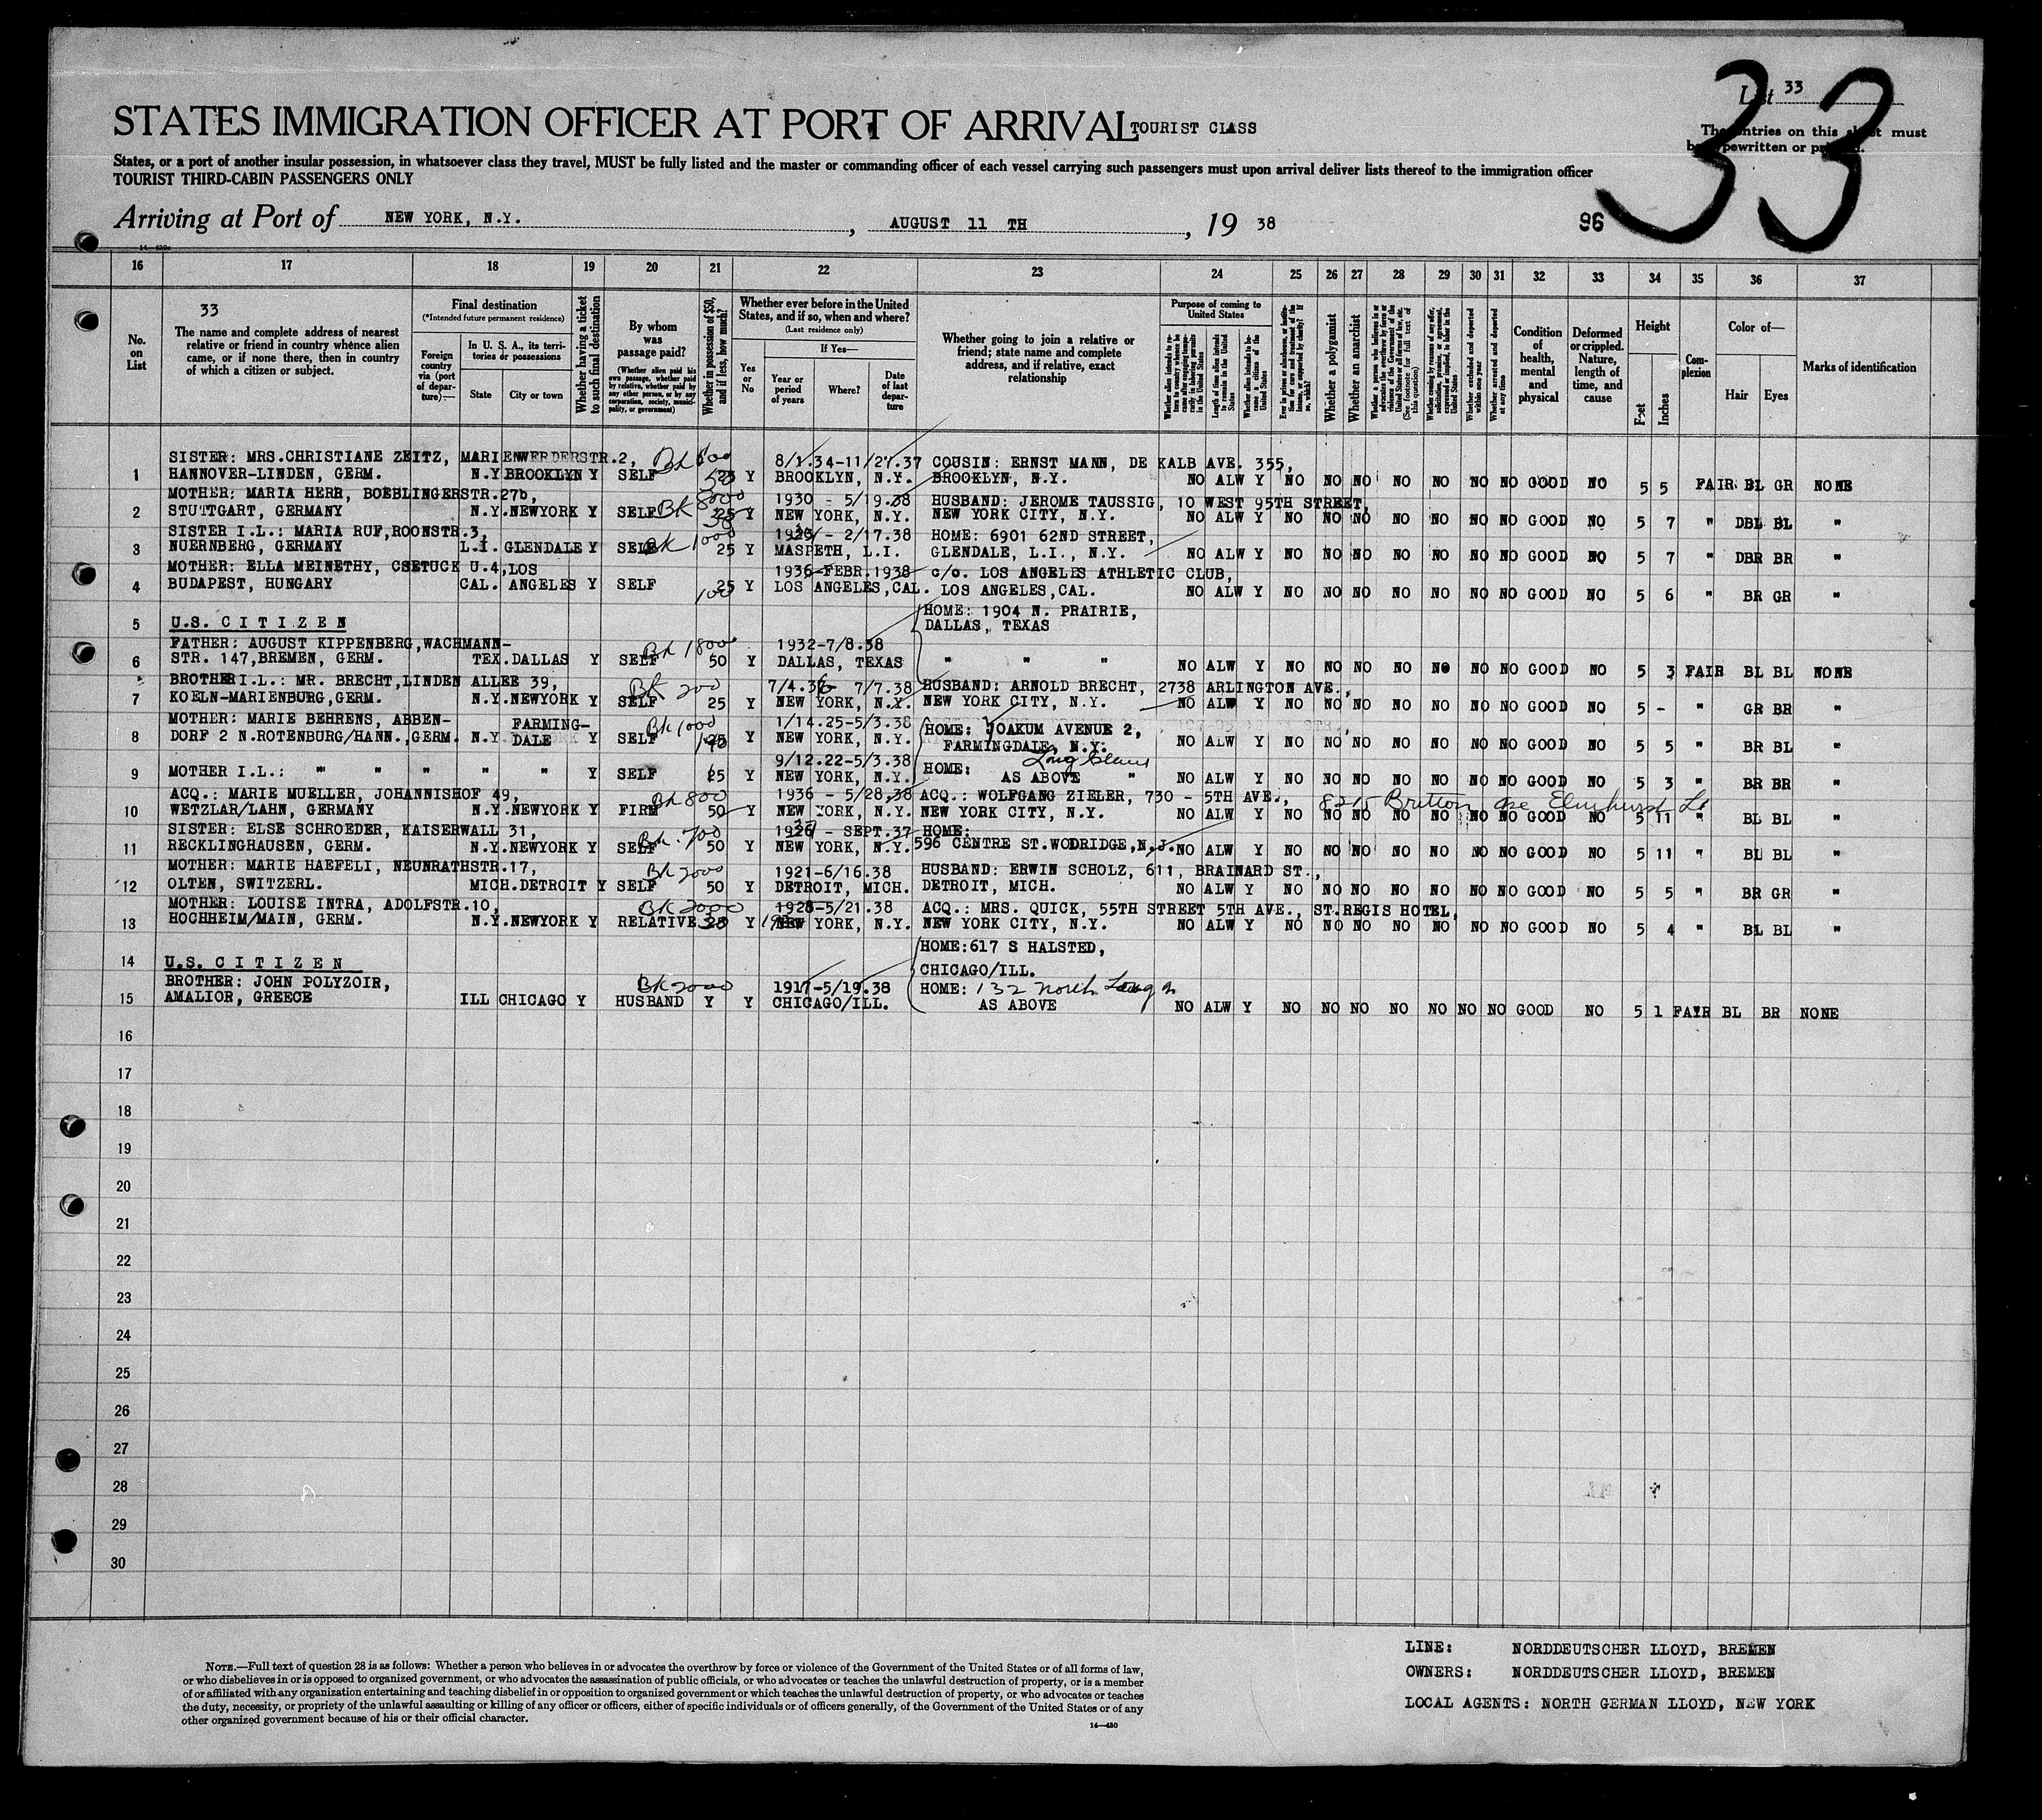 List 33
STATES IMMIGRATION OFFICER AT PORT OF ARRIVAL TOURIST CLASS
The entries on this sheet must
be typewritten or printed.
States, or a port of another insular possession, in whatsoever class they travel, MUST be fully listed and the master or commanding officer of each vessel carrying such passengers must upon arrival deliver lists thereof to the immigration officer
TOURIST THIRD-CABIN PASSENGERS ONLY
33
Arriving at Port of NEW YORK, N.Y. , AUGUST 11 TH , 19 38 96
16 17 18 19 20 21 22 23 24 25 26 27 28 29 30 31 32 33 34 35 36 37
No. on List
33
The name and complete address of nearest relative or friend in country whence alien came, or if none there, then in country of which a citizen or subject.
Final destination
(*Intended future permanent residence)
Foreign country via (port of departure)—
In U. S. A., its territories or possessions
State
City or town
Whether having a ticket to such final destination
By whom was passage paid?
(Whether alien paid his own passage, whether paid by relative, whether paid by any other person, or by any corporation, society, municipality, or government)
Whether in possession of $50, and if less, how much?
Whether ever before in the United States, and if so, when and where?
(Last residence only)
Yes or No
If Yes—
Year or period of years
Where?
Date of last departure
Whether going to join a relative or friend; state name and complete address, and if relative, exact relationship
Purpose of coming to United States
Length of time alien intends to remain in the United States
Whether alien intends to become a citizen of the United States
Whether a polygamist
Whether an anarchist
Whether excluded and deported within one year
Whether arrested and deported at any time
Condition of health, mental and physical
Deformed or crippled. Nature, length of time, and cause
Height
Feet
Inches
Complexion
Color of—
Hair
Eyes
Marks of identification
SISTER: MRS.CHRISTIANE ZEITZ, MARIENWERDERSTR.2, 8/1.34-11/27.37 COUSIN: ERNST MANN, DE KALB AVE. 355,
1 HANNOVER-LINDEN, GERM. N.Y BROOKLYN Y SELF 50 Y BROOKLYN, N.Y. BROOKLYN, N.Y. NO ALW Y NO NO NO NO NO NO NO GOOD NO 5 5 FAIR BL GR NONE
MOTHER: MARIA HERR, BOEBLINGERSTR.27b, Bk 8000 1930 - 5/19.38 HUSBAND: JEROME TAUSSIG, 10 WEST 95TH STREET,
2 STUTTGART, GERMANY N.Y.NEWYORK Y SELF 25 Y NEW YORK, N.Y. NEW YORK CITY, N.Y. NO ALW Y NO NO NO NO NO NO NO GOOD NO 5 7 " DBL BL "
SISTER I.L.: MARIA RUF,ROONSTR.3, Bk 1000 - 2/17.38 HOME: 6901 62ND STREET,
3 NUERNBERG, GERMANY L.I. GLENDALE Y SELF 25 Y MASPETH, L.I. GLENDALE, L.I., N.Y. NO ALW Y NO NO NO NO NO NO NO GOOD NO 5 7 " DBR BR "
MOTHER: ELLA MEINETHY, CSETUCK U.4, LOS 1936-FEBR.1938 c/o. LOS ANGELES ATHLETIC CLUB,
4 BUDAPEST, HUNGARY CAL. ANGELES Y SELF 25 100 Y LOS ANGELES,CAL. LOS ANGELES,CAL. NO ALW Y NO NO NO NO NO NO NO GOOD NO 5 6 " BR GR "
HOME: 1904 N. PRAIRIE,
5 U.S. CITIZEN DALLAS, TEXAS
FATHER: AUGUST KIPPENBERG,WACHMANN- Bk 1800 1932-7/8.38
6 STR. 147,BREMEN, GERM. TEX.DALLAS Y SELF 50 Y DALLAS, TEXAS " " " NO ALW Y NO NO NO NO NO NO NO GOOD NO 5 3 FAIR BL BL NONE
BROTHER I.L.: MR. BRECHT,LINDEN ALLEE 39, Bk 200 7/4.36- 7/7.38 HUSBAND: ARNOLD BRECHT, 2738 ARLINGTON AVE.,
7 KOELN-MARIENBURG,GERM. N.Y.NEWYORK Y SELF 25 Y NEW YORK, N.Y. NEW YORK CITY, N.Y. NO ALW Y NO NO NO NO NO NO NO GOOD NO 5 - " GR BR "
MOTHER: MARIE BEHRENS, ABBEN- FARMING- Bk 1000 1/14.25-5/3.38 HOME: YOAKUM AVENUE 2,
8 DORF 2 N.ROTENBURG/HANN.,GERM. N.Y DALE Y SELF 25 Y NEW YORK, N.Y. FARMINGDALE, N.Y. NO ALW Y NO NO NO NO NO NO NO GOOD NO 5 5 " BR BL "
9/12.22-5/3.38 HOME: Long
9 MOTHER I.L.: " " " " " Y SELF 25 Y NEW YORK, N.Y. AS ABOVE " NO ALW Y NO NO NO NO NO NO NO GOOD NO 5 3 " BR BR "
ACQ.: MARIE MUELLER, JOHANNISHOF 49, Bk 800 1936 - 5/28.38 ACQ.: WOLFGANG ZIELER, 730 - 5TH AVE., 8215 Britton ave Elmhurst LI
10 WETZLAR/LAHN, GERMANY N.Y.NEWYORK Y FIRM 50 Y NEW YORK, N.Y. NEW YORK CITY, N.Y. NO ALW Y NO NO NO NO NO NO NO GOOD NO 5 11 " BL BL "
SISTER: ELSE SCHROEDER, KAISERWALL 31, Bk. 700 - SEPT.37 HOME:
11 RECKLINGHAUSEN, GERM. N.Y.NEWYORK Y SELF 50 Y NEW YORK, N.Y. 596 CENTRE ST.WODRIDGE,N.J. NO ALW Y NO NO NO NO NO NO NO GOOD NO 5 11 " BL BL "
MOTHER: MARIE HAEFELI, NEUNRATHSTR.17, 1921-6/16.38 HUSBAND: ERWIN SCHOLZ, 611, BRAINARD ST.,
12 OLTEN, SWITZERL. MICH.DETROIT Y SELF 50 Y DETROIT, MICH. DETROIT, MICH. NO ALW Y NO NO NO NO NO NO NO GOOD NO 5 5 " BR GR "
MOTHER: LOUISE INTRA, ADOLFSTR.10, Bk 2000 1928-5/21.38 ACQ.: MRS. QUICK, 55TH STREET 5TH AVE., ST.REGIS HOTEL,
13 HOCHHEIM/MAIN, GERM. N.Y.NEWYORK Y RELATIVE Y NEW YORK, N.Y. NEW YORK CITY, N.Y. NO ALW Y NO NO NO NO NO NO NO GOOD NO 5 4 " BL BL "
HOME:617 S HALSTED,
14 U.S. CITIZEN CHICAGO/ILL.
BROTHER: JOHN POLYZOIR, Bk 2000 1917-5/19.38 HOME: 132 North
15 AMALIOR, GREECE ILL CHICAGO Y HUSBAND Y Y CHICAGO/ILL. AS ABOVE NO ALW Y NO NO NO NO NO NO NO GOOD NO 5 1 FAIR BL BR NONE
16
17
18
19
20
21
22
23
24
25
26
27
28
29
30
NOTE.—Full text of question 28 is as follows: Whether a person who believes in or advocates the overthrow by force or violence of the Government of the United States or of all forms of law,
or who disbelieves in or is opposed to organized government, or who advocates the assassination of public officials, or who advocates or teaches the unlawful destruction of property, or is a member
of or affiliated with any organization entertaining and teaching disbelief in or opposition to organized government or which teaches the unlawful destruction of property, or who advocates or teaches
the duty, necessity, or propriety of the unlawful assaulting or killing of any officer or officers, either of specific individuals or of officers generally, of the Government of the United States or of any
other organized government because of his or their official character.
14—430
LINE: NORDDEUTSCHER LLOYD, BREMEN
OWNERS: NORDDEUTSCHER LLOYD, BREMEN
LOCAL AGENTS: NORTH GERMAN LLOYD, NEW YORK